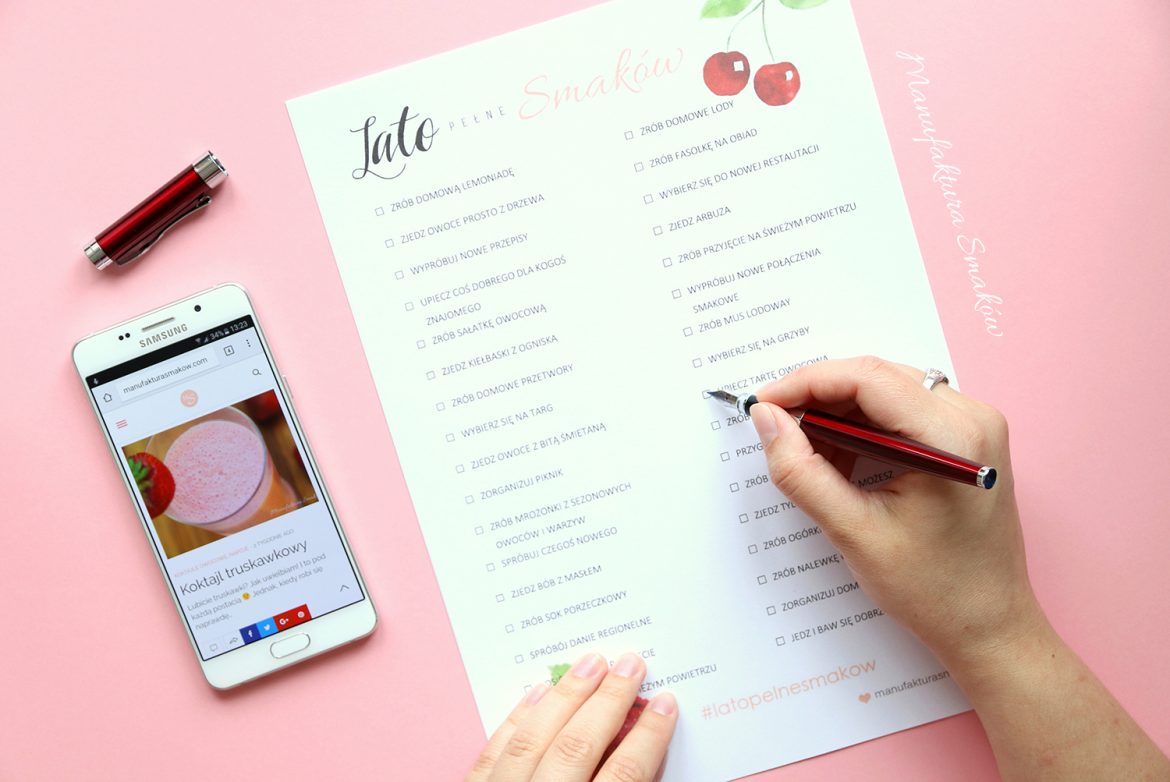 Lato PEŁNE Smaków
ZRÓB DOMOWĄ LEMONIADĘ
ZJEDZ OWOCE PROSTO Z DRZEWA
WYPRÓBUJ NOWE PRZEPISY
UPIECZ COŚ DOBREGO DLA KOGOŚ
ZNAJOMEGO
ZRÓB SAŁATKĘ OWOCOWĄ
ZJEDZ KIEŁBASKI Z OGNISKA
ZRÓB DOMOWE PRZETWORY
WYBIERZ SIĘ NA TARG
ZJEDZ OWOCE Z BITĄ ŚMIETANĄ
ZORGANIZUJ PIKNIK
ZRÓB MROZONKI Z SEZONOWYCH
OWOCÓW I WARZYW
SPRÓBUJ CZEGOŚ NOWEGO
ZJEDZ BÓB Z MASŁEM
ZRÓB SOK PORZECZKOWY
SPRÓBÓJ DANIE REGIONELNE
POWIETRZU
ZRÓB DOMOWE LODY
ZRÓB FASOLKĘ NA OBIAD
WYBIERZ SIĘ DO NOWEJ RESTAUTACJI
ZJEDZ ARBUZA
ZRÓB PRZYJĘCIE NA ŚWIEŻYM POWIETRZU
WYPRÓBUJ NOWE POŁĄCZENIA
SMAKOWE
ZRÓB MUS LODOWY
WYBIERZ SIĘ NA GRZYBY
UPIECZ TARTĘ OWOCOWĄ
ZRÓB
PRZYG
ZRÓB MOŻESZ
ZJEDZ TYL
ZRÓB OGÓRK
ZRÓB NALEWKĘ
ZORGANIZUJ DOM
JEDZ I BAW SIĘ DOBRZ
#latopelnesmakow
manufakturasm
Manufaktura Smaków
SAMSUNG
34% 13:23
manufakturasmakow.com
KOKTAJLE OWOCOWE, NAPOJE - 2 TYGODNIE AGO
Koktajl truskawkowy
Lubicie truskawki? Jak uwielbiam! I to pod
każdą postacią Jednak, kiedy robi się
naprawdę..